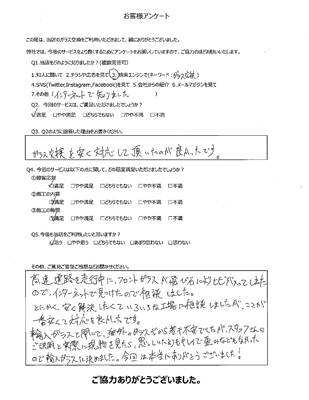 お客様アンケート
この度は、当店のガラス交換をご利用いただきまして、誠にありがとうございました。
弊社では、今後のサービスをより良くするためにアンケートをお願いしていますので、ご協力の程お願いいたします。
Q1. 当店をどのように知りましたか?(複数回答可)
1.知人に聞いて 2.チラシや広告を見て 3.検索エンジンで(キーワード:ガラス交換)
4.SNS(Twitter,Instagram,Facebook)を見て 5.会社からの紹介 6.メールマガジンを見て
7.その他(インターネットで知りました)
Q2. 今回のサービスは、ご満足いただけましたでしょうか?
☑満足 □やや満足 □どちらでもない □やや不満 □不満
Q3. Q2のように回答した理由をお書きください。
ガラス交換を安く対応して頂いたのが良かったです。
Q4. 今回のサービスは以下の点に関して、どの程度満足いただけましたでしょうか?
①接客応対
☑満足 □やや満足 □どちらでもない □やや不満 □不満
②施工の内容
☑満足 □やや満足 □どちらでもない □やや不満 □不満
③施工の時間
☑満足 □やや満足 □どちらでもない □やや不満 □不満
Q5. 今後も当店をご利用したいと思いますか?
☑思う □やや思う □どちらでもない □あまり思わない □思わない
その他、ご意見ご要望など自由にお書きください。
高速道路を走行中に、フロントガラスが飛び石によりヒビが入ってしまた
ので、インターネットで見つけたので相談しました。
とにかく、安く解決したくていろいろな工場に相談しましたが、ここが
一番安くて対応も良かったです。
輸入ガラスと聞いて、海外のガラスだから若干不安でしたが、スタッフさんの
ご説明と実際に現物を見たら、
ので輸入ガラスに決めました。今回は本当にありがとうございました!
ご協力ありがとうございました。